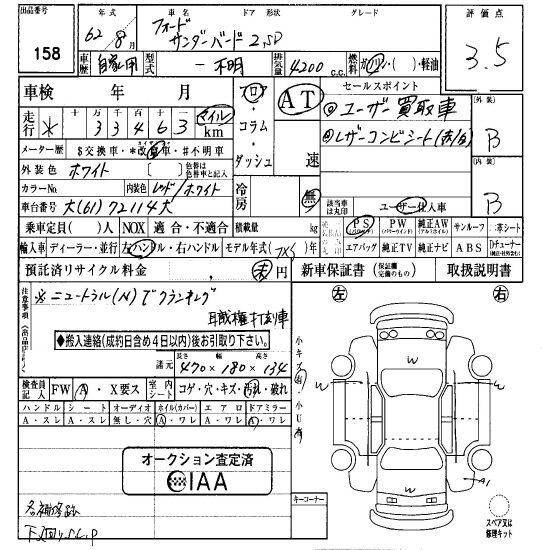 出品番号
158
年式
62年8月
車名
フォード
サンダーバード 2,5D
ドア 形状
グレード
評価点
3.5
車歴
自家用
型式
不明
排気量
4200 c.c.
燃料
ガソリン・( )・軽油
車検 年 月
フロア・コラム・ダッシュ
AT
速
セールスポイント
@ユーザー買取車
@レザーコンビシート(赤/白)
外装
B
内装
B
走行
* 33463 マイル km
メーター歴
$交換車・*改ざん車・#不明車
外装色
ホワイト
( )
色替は色替車と記入
カラーNo.
内装色
レッド/ホワイト
冷房
無
車台番号
大(61)72114大
該当車は丸印
ユーザー仕入車
乗車定員( )人
NOX
適合・不適合
積載量
kg
PS
PW
純正AW
サンルーフ
革シート
輸入車
ディーラー・並行
左ハンドル・右ハンドル
モデル年式( )年
エアバッグ
純正TV
純正ナビ
ABS
Dチューナー
預託済リサイクル料金
円
新車保証書
取扱説明書
注意事項
※ニュートラル(N)でクランキング
職権打刻車
◆搬入連絡(成約日含め4日以内)後お引取り下さい。
諸元
長さ 幅 高さ
470×180×134
検査員記入
FW
A・X要ス
室内シート
コゲ・穴・キズ・汚れ・破れ
ハンドル
シート
オーディオ
ホイル(カバー)
エアロ
ドアミラー
A・スレ
A・スレ
無し・穴
A・ワレ
A・ワレ
A・ワレ
オークション査定済
IAA
各補修跡
キーコーナー
左
右
W
W
W
W
A1
スペア又は
修理キット